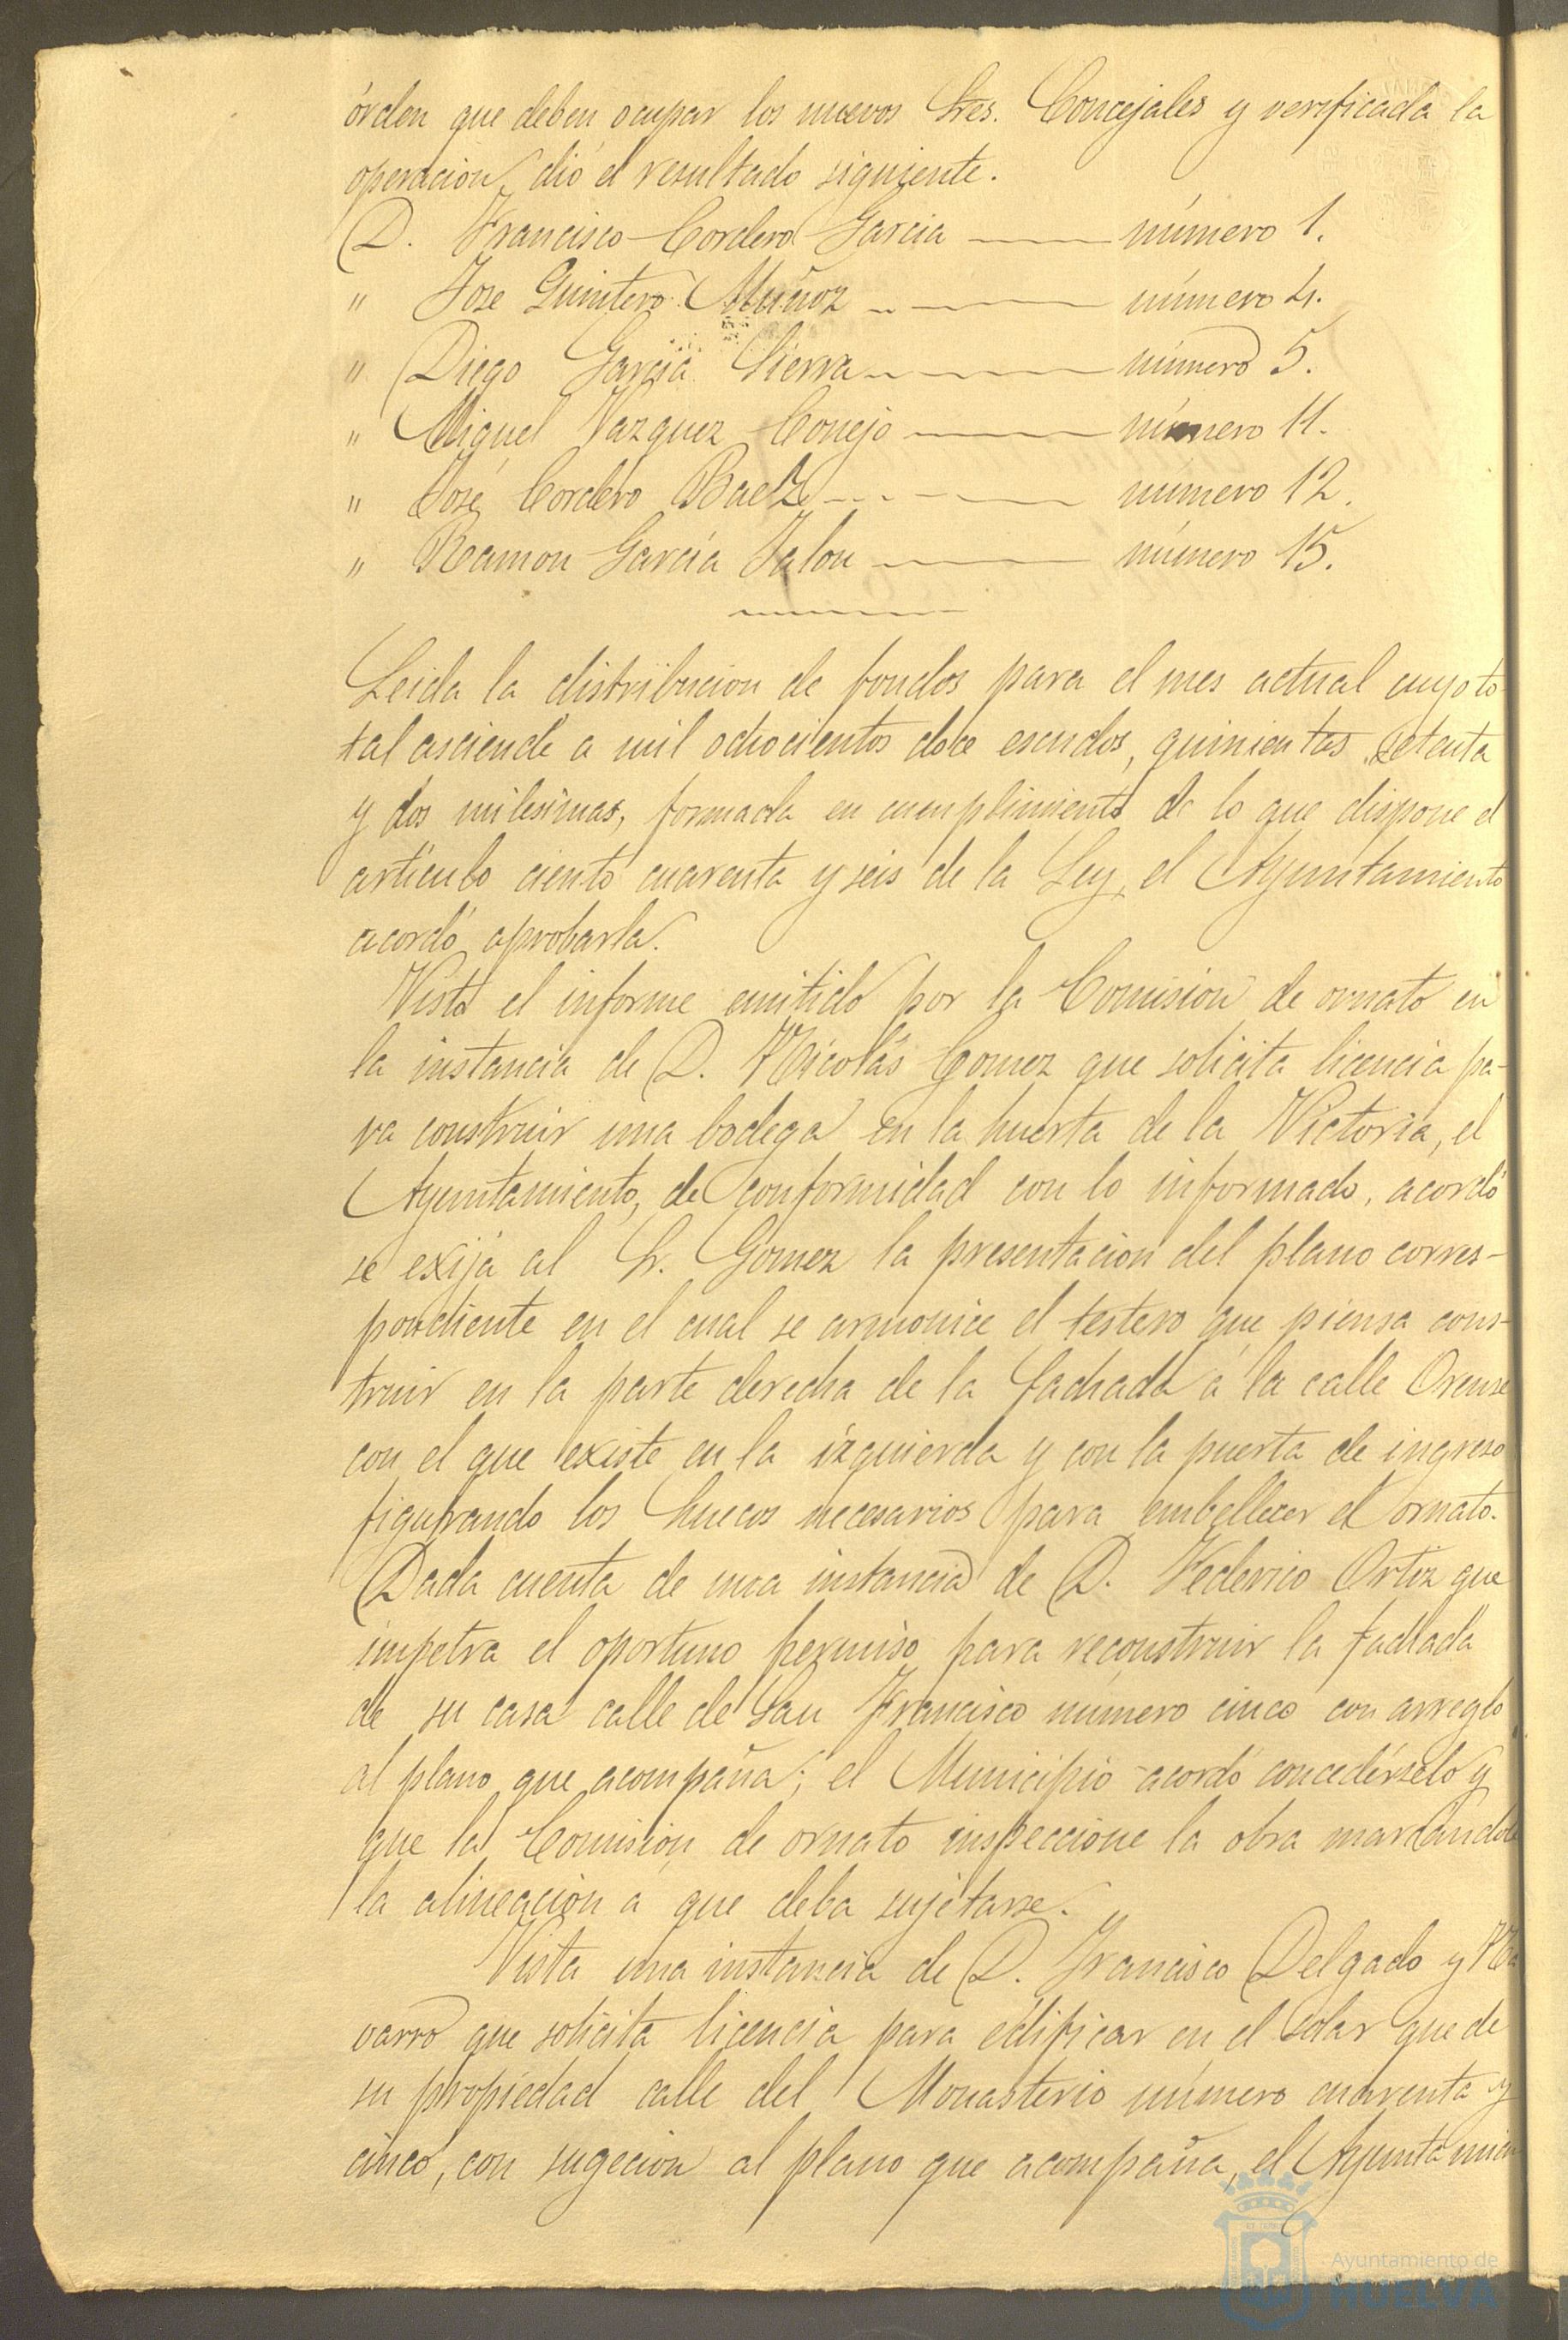 órden que deben ocupar los nuevos Sres. Concejales y verificada la
operacion, dió el resultado siguiente.
D. Francisco Cordero Garcia —— número 1.
" Jose Quintero Muñoz —— número 4.
" Diego Garcia Sierra —— número 5.
" Miguel Vazquez Conejo —— número 11.
" José Cordero Baez —— número 12.
" Ramon García Jalon —— número 15.
Leida la distribucion de fondos para el mes actual cuyo to-
tal asciende a mil ochocientos doce escudos, quinientas setenta
y dos milesimas, formada en cumplimiento de lo que dispone el
artículo ciento cuarenta y seis de la Ley, el Ayuntamiento
acordó aprobarla.
Visto el informe emitido por la Comision de ornato en
la instancia de D. Nicolás Gomez que solicita licencia pa-
ra construir una bodega en la huerta de la Victoria, el
Ayuntamiento, de conformidad con lo informado, acordó
se exija al Sr. Gomez la presentacion del plano corres-
pondiente en el cual se armonice el testero que piensa cons-
truir en la parte derecha de la fachada á la calle Orense
con el que existe en la izquierda y con la puerta de ingreso
figurando los huecos necesarios para embellecer el ornato.
Dada cuenta de una instancia de D. Federico Ortiz que
impetra el oportuno permiso para reconstruir la fachada
de su casa calle de San Francisco número cinco con arreglo
al plano que acompaña; el Municipio acordó concedérselo y
que la Comision de ornato inspeccione la obra marcándole
la alineacion á que deba sujetarse.
Vista una instancia de D. Francisco Delgado y Na
varro que solicita licencia para edificar en el solar que de
su propiedad calle del Monasterio número cuarenta y
cinco, con sugecion al plano que acompaña, el Ayuntamien
Ayuntamiento de
HUELVA